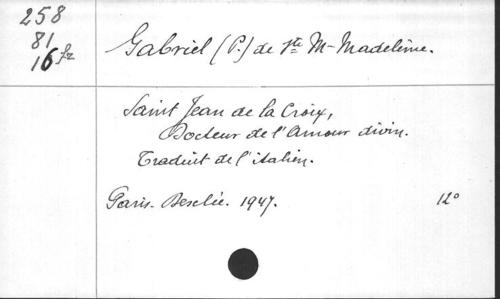 258
81
16 fr
Gabriel (P.) de Ste M-Madeleine.
Saint Jean de la Croix,
Docteur de l'Amour divin.
Traduit de l'italien.
Paris. Desclée. 1947. 12°